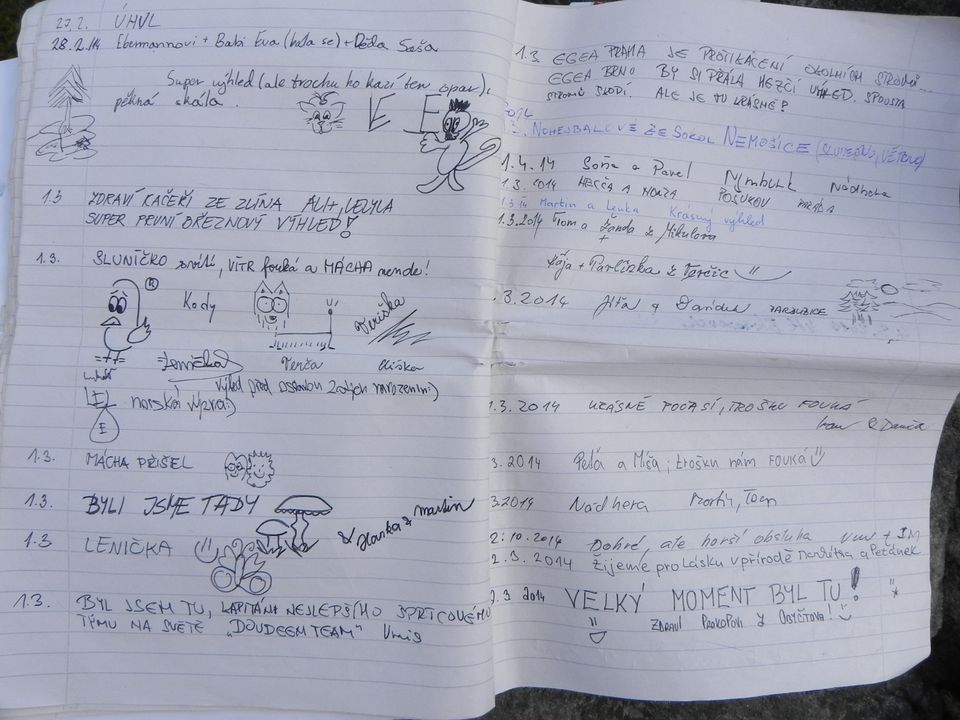 27.2. ÚHUL
28.2.14 Ebermannovi + Babi Eva (bála se) + Děda Saša
Super výhled (ale trochu ho kazí ten opar),
pěkná skála.
E E
1.3 ZDRAVÍ KAČEŘI ZE ZLÍNA
SUPER PRVNÍ BŘEZNOVÝ VÝHLED!
1.3. SLUNÍČKO svítí, VÍTR fouká a MÁCHA nende!
Kody
Terezka
Lenička
Terča
Eliška
Lukáš
výhled před oslavou narozenin:)
E norská výprava:)
E
1.3. MÁCHA PŘIŠEL
1.3. BYLI JSME TADY
Hanka & martin
1.3 LENIČKA
1.3. BYL JSEM TU, KAPITÁN NEJLEPŠÍHO ŠPRTCOVÉHO
TÝMU NA SVĚTĚ „DOUDEEM TEAM"
1.3. EGEA PRAHA JE PROTI KÁCENÍ OKOLNÍCH STROMŮ...
EGEA BRNO BY SI PŘÁLA HEZČÍ VÝHLED. SPOUSTA
STROMŮ ŠKODÍ. ALE JE TU KRÁSNĚ!
NOHEJBALOVÉ ZE SOKOL NEMOŠICE (SLUNEČNO, VĚTRNO)
1.4.14 Soňa a Pavel Nymburk Nádhera
1.3.2014 HONZA
1.3.14 Martin a Lenka Krásný výhled
1.3.2014 Tom a Janda z Mikulova
+
Kája + Pavlínka z Terčic
.3.2014 Jiťa & PARDUBICE
1.3.2014 KRÁSNÉ POČASÍ, TROŠKU FOUKÁ
Ivan & Danča
3.2014 Péťa a Míša; trošku nám FOUKÁ
3.2014 Nádhera Martin, Tom
2.10.2014 Dobré, ale horší obsluha
2.3.2014 Žijeme pro Lásku v přírodě Markétka a Peťánek
2.3 2014 VELKÝ MOMENT BYL TU!
ZDRAVÍ PROKOPOVI Z OBYČTOVA!